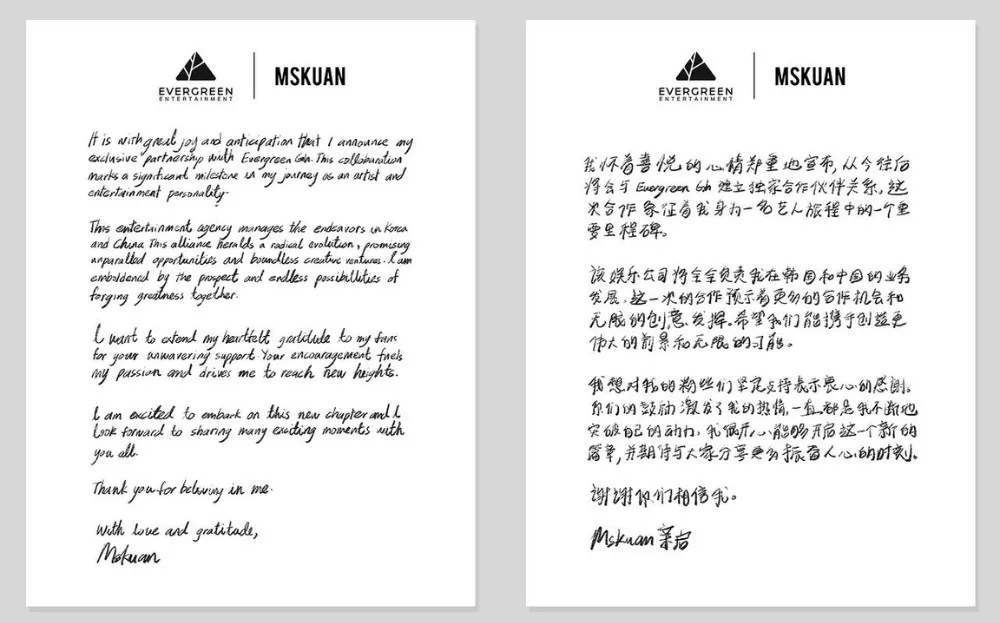 EVERGREEN
ENTERTAINMENT
MSKUAN
It is with great joy and anticipation that I announce my
exclusive partnership with Evergreen Gah. This collaboration
marks a significant milestone in my journey as an artist and
entertainment personality.
This entertainment agency manages the endeavors in Korea
and China This alliance heralds a radical evolution, promising
unparalled opportunities and boundless creative ventures. I am
emboldened by the prospect and endless possibilities of
forging greatness together.
I want to extend my heartfelt gratitude to my fans
for your unwavering support. Your encouragement fuels
my passion and drives me to reach new heights.
I am excited to embark on this new chapter and I
look forward to sharing many exciting moments with
you all.
Thank you for believing in me.
With love and gratitude,
Mskuan
EVERGREEN
ENTERTAINMENT
MSKUAN
我怀着喜悦的心情郑重地宣布,从今往后
将会与 Evergreen Gah 建立独家合作伙伴关系,这
次合作象征着我身为一名艺人旅程中的一个重
要里程碑。
该娱乐公司将全全负责我在韩国和中国的业务
发展,这一次的合作预示着更多的合作机会和
无限的创意发挥。希望我们能携手创造更
伟大的前景和无限的可能。
我想对我的粉丝们坚定支持表示衷心的感谢。
你们的鼓励激发了我的热情,一直都是我不断地
突破自己的动力,我很开心能够开启这一个新的
篇章,并期待与大家分享更多振奋人心的时刻。
谢谢你们相信我。
Mskuan 亲启